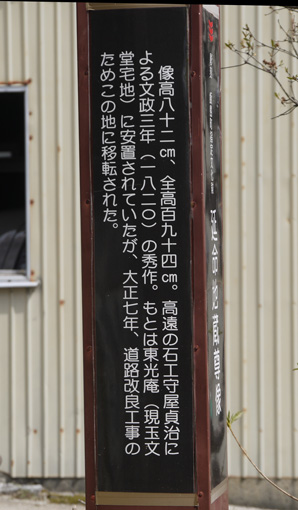 像高八十二㎝、全高百九十四㎝。高遠の石工守屋貞治に
よる文政三年(一八二〇)の秀作。もとは東光庵(現玉文
堂宅地)に安置されていたが、大正七年、道路改良工事の
ためこの地に移転された。
延命地蔵尊像